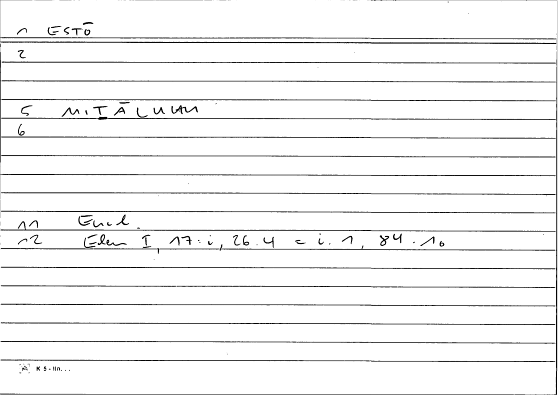 1 ESTŌ
2
5 MITĀLUHU
6
11 Eucl.
12 Elem I, 17: i, 26.4 = i. 1, 84.10